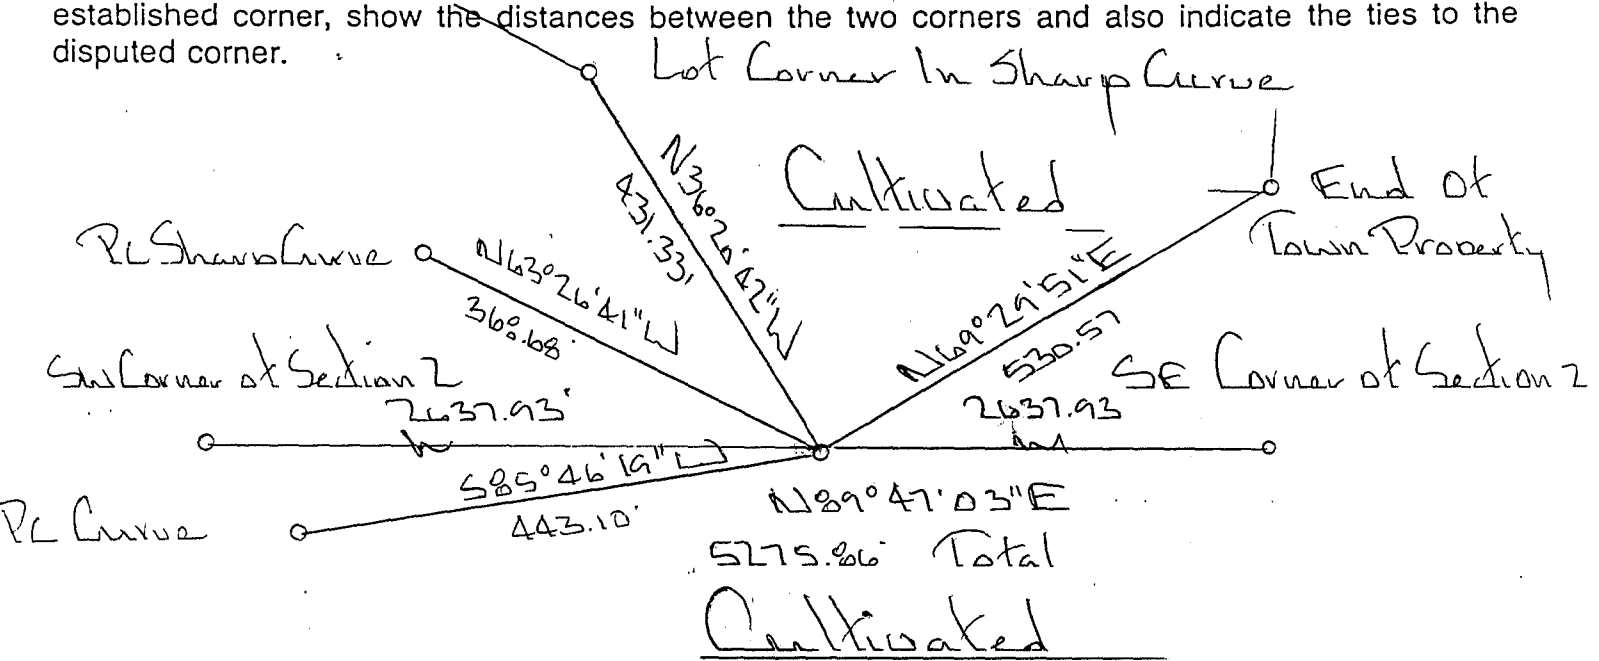 established corner, show the distances between the two corners and also indicate the ties to the
disputed corner.
Lot Corner In Sharp Curve
N36°20'42"W
431.33'
Cultivated
End of
Town Property
PC Sharp Curve
N63°26'41"W
368.68'
N69°29'51"E
530.57
SW Corner of Section 2
2637.93'
SE Corner of Section 2
2637.93
S85°46'19"W
443.10'
PC Curve
N89°47'03"E
5275.86' Total
Cultivated